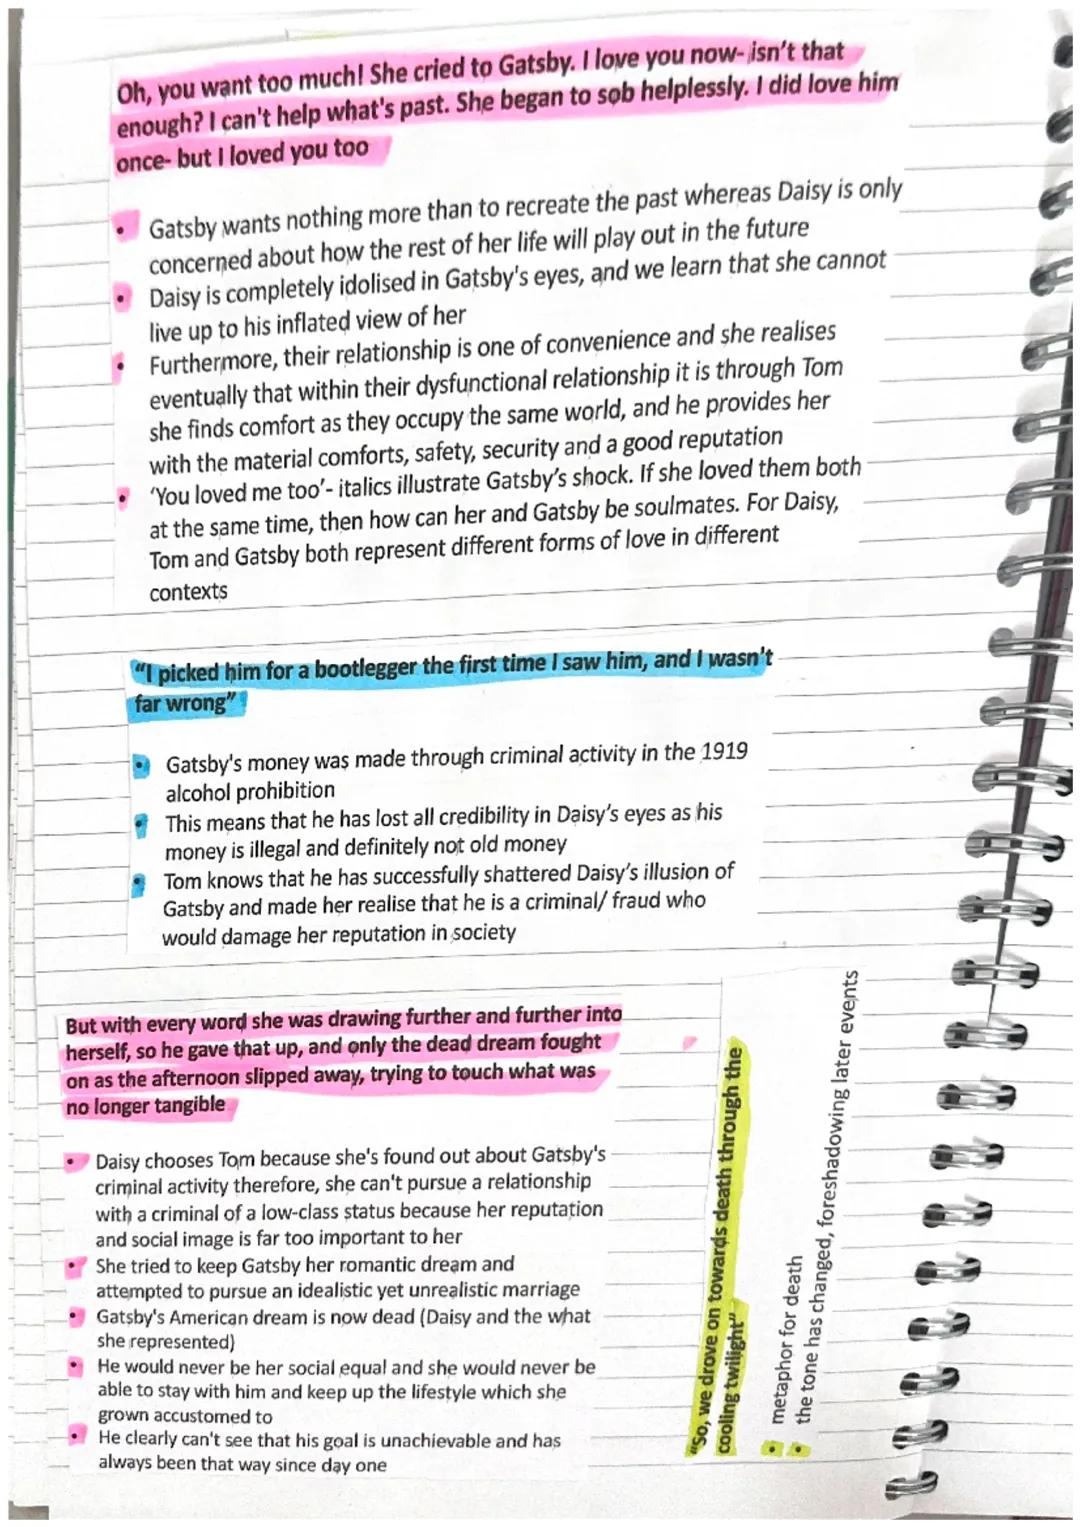 Oh, you want too much! She cried to Gatsby. I love you now- isn't that
enough? I can't help what's past. She began to sob helplessly. I did love him
once- but I loved you too
• Gatsby wants nothing more than to recreate the past whereas Daisy is only
concerned about how the rest of her life will play out in the future
• Daisy is completely idolised in Gatsby's eyes, and we learn that she cannot
live up to his inflated view of her
• Furthermore, their relationship is one of convenience and she realises
eventually that within their dysfunctional relationship it is through Tom
she finds comfort as they occupy the same world, and he provides her
with the material comforts, safety, security and a good reputation
• 'You loved me too'- italics illustrate Gatsby's shock. If she loved them both
at the same time, then how can her and Gatsby be soulmates. For Daisy,
Tom and Gatsby both represent different forms of love in different
contexts
"I picked him for a bootlegger the first time I saw him, and I wasn't
far wrong"
• Gatsby's money was made through criminal activity in the 1919
alcohol prohibition
• This means that he has lost all credibility in Daisy's eyes as his
money is illegal and definitely not old money
• Tom knows that he has successfully shattered Daisy's illusion of
Gatsby and made her realise that he is a criminal/ fraud who
would damage her reputation in society
But with every word she was drawing further and further into
herself, so he gave that up, and only the dead dream fought
on as the afternoon slipped away, trying to touch what was
no longer tangible
• Daisy chooses Tom because she's found out about Gatsby's
criminal activity therefore, she can't pursue a relationship
with a criminal of a low-class status because her reputation
and social image is far too important to her
• She tried to keep Gatsby her romantic dream and
attempted to pursue an idealistic yet unrealistic marriage
• Gatsby's American dream is now dead (Daisy and the what
she represented)
• He would never be her social equal and she would never be
able to stay with him and keep up the lifestyle which she
grown accustomed to
• He clearly can't see that his goal is unachievable and has
always been that way since day one
"So, we drove on towards death through the
cooling twilight"
• metaphor for death
• the tone has changed, foreshadowing later events